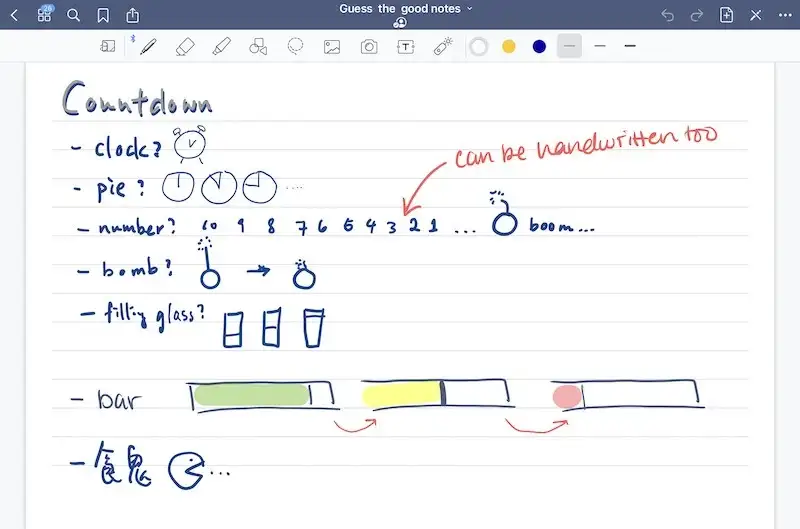 26
Guess the good notes
T
Countdown
- clock?
can be handwritten too
- pie? ....
- number? 10 9 8 7 6 5 4 3 2 1 ... boom...
- bomb?
- filling glass?
- bar
- 食鬼 ...